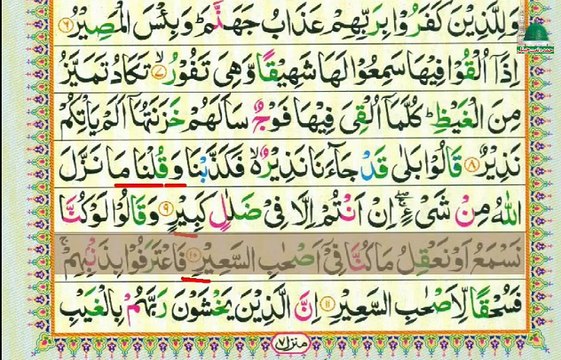 وَلِلَّذِيْنَ كَفَرُوْا بِرَبِّهِمْ عَذَابُ جَهَنَّمَ ؕ وَبِئْسَ الْمَصِيْرُ ﴿۶﴾
اِذَاۤ اُلْقُوْا فِيْهَا سَمِعُوْا لَهَا شَهِيْقًا وَّهِيَ تَفُوْرُ ﴿۷﴾ۙ تَكَادُ تَمَيَّزُ
مِنَ الْغَيْظِ ؕ كُلَّمَاۤ اُلْقِيَ فِيْهَا فَوْجٌ سَاَلَهُمْ خَزَنَتُهَاۤ اَلَمْ يَاْتِكُمْ
نَذِيْرٌ ﴿۸﴾ قَالُوْا بَلٰى قَدْ جَآءَنَا نَذِيْرٌ ۙ فَكَذَّبْنَا وَقُلْنَا مَا نَزَّلَ
اللّٰهُ مِنْ شَيْءٍ ۖۚ اِنْ اَنْتُمْ اِلَّا فِيْ ضَلٰلٍ كَبِيْرٍ ﴿۹﴾ وَقَالُوْا لَوْ كُنَّا
نَسْمَعُ اَوْ نَعْقِلُ مَا كُنَّا فِيْۤ اَصْحٰبِ السَّعِيْرِ ﴿۱۰﴾ فَاعْتَرَفُوْا بِذَنْۢبِهِمْ ۚ
فَسُحْقًا لِّاَصْحٰبِ السَّعِيْرِ ﴿۱۱﴾ اِنَّ الَّذِيْنَ يَخْشَوْنَ رَبَّهُمْ بِالْغَيْبِ
منزل ۷